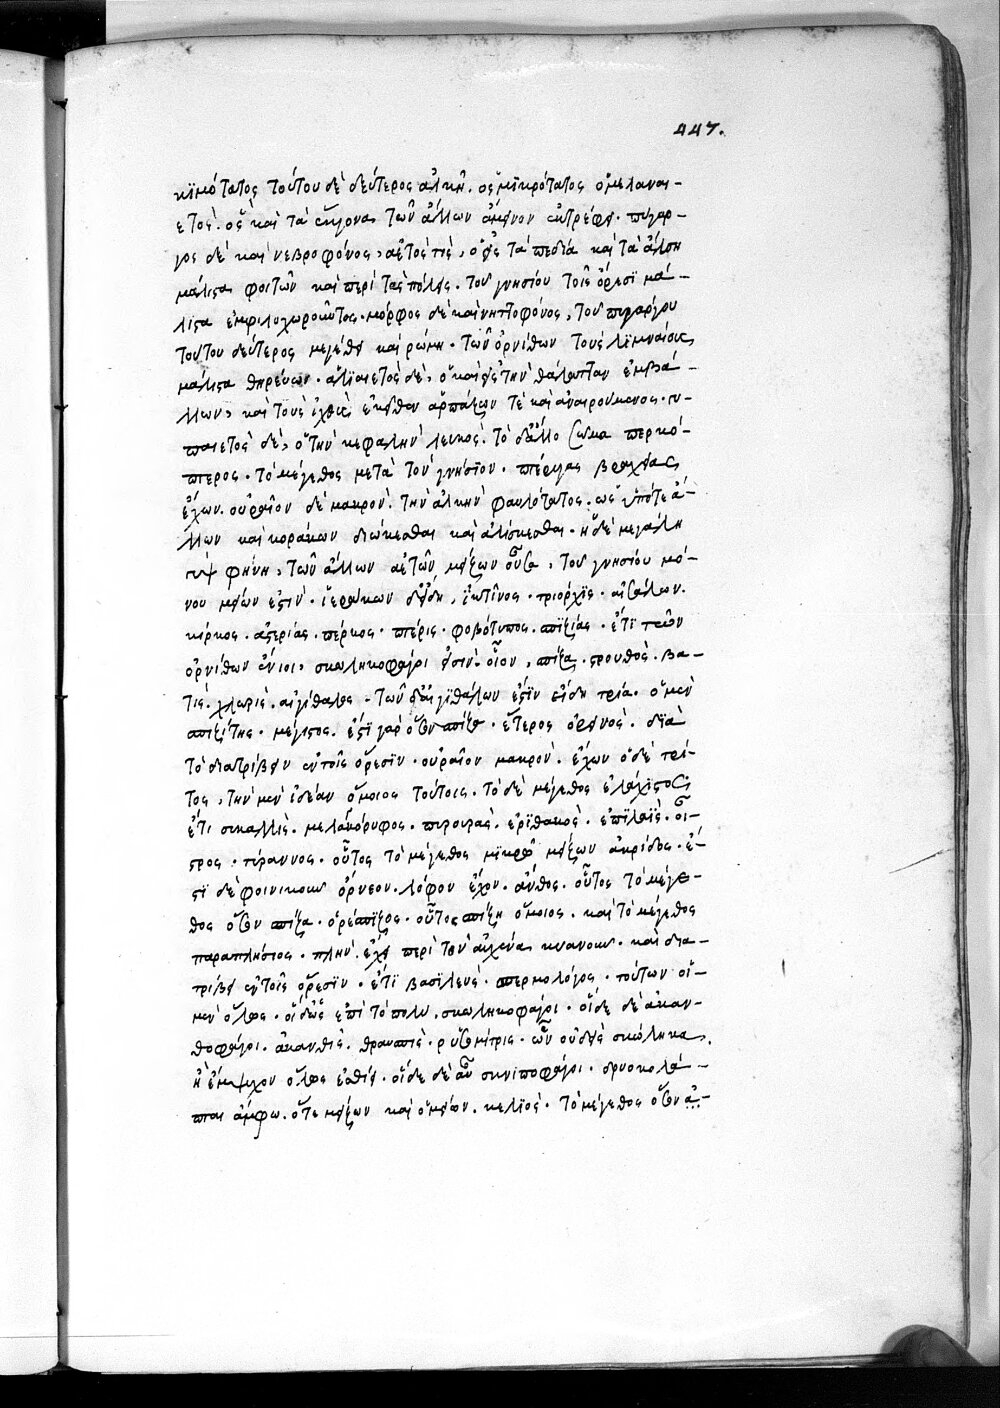 447.
κϊμότατος τούτου δὲ δεύτερος ἀλκῆ. ὁς μϊκρότατος ὁ μελαναι-
ετὸς. ὃς καὶ τὰ ἔκγονα τῶν ἄλλων ἄμεινον ἐκτρέφει. πύγαρ-
γος δὲ καὶ νεβροφόνος, αἐτός τις, ὁ εἰς τὰ πεδία καὶ τὰ ἄλση
μάλιστα φοιτῶν καὶ περὶ τὰς πόλεις. τοῦ γνησίου τοῖς ὄρεσϊ μά-
λϊστα ἐμφιλοχωροῦντος. μόρφος δὲ καὶ νηττοφόνος, τοῦ πυγάργου
τούτου δεύτερος μεγέθει καὶ ῥώμη. τῶν ὀρνίθων τοὺς λϊμναίους
μάλιστα θηρεύων. ἁλϊαιετὸς δὲ, ὁ καὶ εἰς τὴν θάλατταν ἐμβά-
λλων, καὶ τοὺς ἰχθῦς ἐκεῖθεν ἁρπάζων τὲ καὶ ἀναιρούμενος. γυ-
παιετὸς δὲ, ὁ τὴν κεφαλὴν λευκὸς. τὸ δ' ἄλλο σῶμα περκό-
πτερος. τὸ μέγεθος μετὰ τὸν γνήσϊον. πτέρυγας βραχείας
ἔχων. οὐραῖον δὲ μακρὸν. τὴν ἀλκὴν φαυλότατος. ὡς ὑπό τε ἄ-
λλων καὶ κοράκων διώκεσθαι καὶ ἁλίσκεσθαι. ἡ δὲ μεγάλη
γὺψ φήνη, τῶν ἄλλων αετῶν μείζων οὖσα, τοῦ γνησίου μό-
νου μείων ἐστὶν. ἱεράκων δ' εἴδη, ἰκτῖνος. τριόρχϊς. αἰσάλων.
κίρκος. ἀστερίας. πέρκος. πτέρις. φαβότυπος. σπϊζίας. ἔτϊ τῶν
ὀρνίθων ἔνιοι, σκωληκοφάγοι εἰσὶν. οἷον, σπίζα. στρουθὸς. βα-
τὶς. χλωρὶς. αἰγίθαλος. τῶν δ' αἰγϊθάλων ἐστὶν εἴδη τρία. ὁ μὲν
σπιζίτης. μέγιστος. ἔστϊ γὰρ ὅσον σπίζα. ἕτερος ὀρεινὸς. δϊὰ
τὸ διατρίβειν ἐν τοῖς ὄρεσϊν. οὐραῖον μακρὸν. ἔχων ὁ δὲ τρί-
τος, τὴν μὲν ἰδέαν ὅμοιος τούτοις. τὸ δὲ μέγεθος ἐλάχϊστος
ἔτι συκαλλὶς. μελαγκόρυφος. πυρουρὰς. ἐρϊθακὸς. ἐπϊλαῒς. οἶ-
στρος. τύραννος. οὗτος τὸ μέγεθος μϊκρῶ μείζων ἀκρίδος. ἔ-
στϊ δὲ φοινικοῦν ὄρνεον. λόφον ἔχον. ἄνθος. οὗτος τὸ μέγε-
θος ὅσον σπίζα. ὀρέσπϊζος. οὗτος σπίζη ὅμοιος. καὶ τὸ μέγεθος
παραπλήσιος. πλὴν. ἔχει περὶ τὸν αὐχένα κυανοῦν. καὶ δια-
τρίβει ἐν τοῖς ὄρεσϊν. ἔτϊ βασϊλεὺς. σπερμολόγος. τούτων οἱ-
μὲν ὅλως. οἱ δ' ὡς ἐπὶ τὸ πολὺ, σκωληκοφάγοι. οἵδε δὲ ἀκαν-
θοφάγοι. ἀκανθὶς. θραυπὶς. χρυσομίτρις. ὧν οὐδεὶς σκώληκα,
ἢ ἔμψυχον ὅλως ἐσθίει. οἵδε δὲ αὖ σκνιποφάγοι. δρυοκολά-
πται ἄμφω. ὅ τε μείζων καὶ ὁ μείων. κελϊὸς. τὸ μέγεθος ὅσον ἀ-